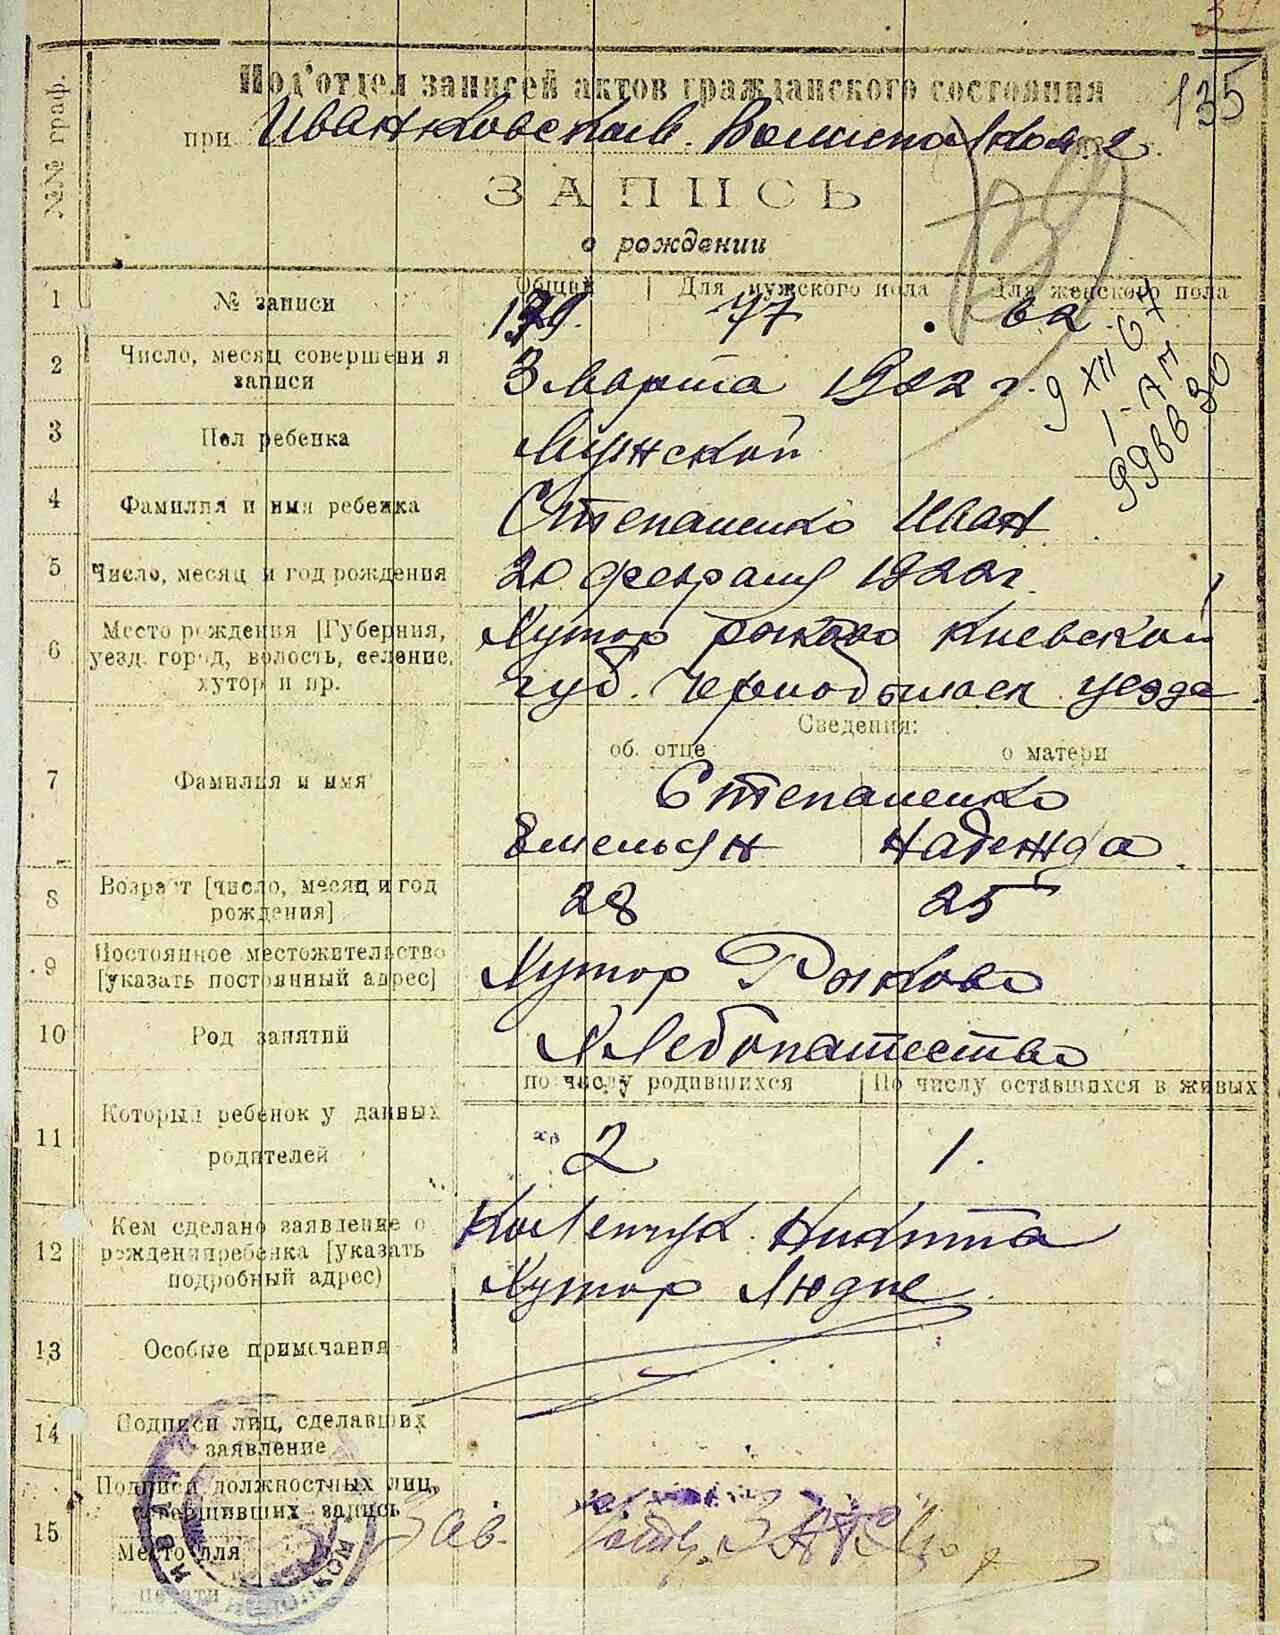 34
Под'отдел записей актов гражданского состояния
135
при Иванковском Волисполкоме.
ЗАПИСЬ
о рождении
№№ граф.
Общий | Для мужского пола | Для женского пола
1 № записи 139. 77 62
2 Число, месяц совершения записи 3 Марта 1922 г.
9 XII 67
1-АМ
996630
3 Пол ребенка Мужской
4 Фамилия и имя ребенка Степаненко Иван
5 Число, месяц и год рождения 20 февраля 1922 г.
6 Место рождения [Губерния, Хутор Рыково Киевской
уезд, город, волость, селение, губ. Чернобыльск уезда
хутор и пр.
Сведения:
об отце о матери
7 Фамилия и имя Степаненко
Емельян Надежда
8 Возраст [число, месяц и год рождения] 28 25
9 Постоянное местожительство Хутор Рыково
[указать постоянный адрес]
10 Род занятий Хлебопашество
по числу родившихся | По числу оставшихся в живых
11 Который ребенок у данных родителей 2 1.
12 Кем сделано заявление о Никита
рождении ребенка [указать Хутор
подробный адрес)
13 Особые примечания
14 Подписи лиц, сделавших
заявление
Подписи должностных лиц,
совершивших запись
15 Зав.
Место для
печати